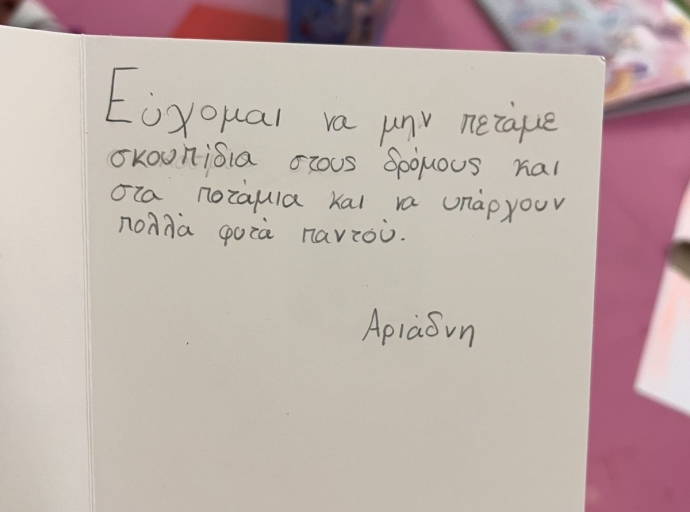 Εύχομαι να μην πετάμε
σκουπίδια στους δρόμους και
στα ποτάμια και να υπάρχουν
πολλά φυτά παντού.
Αριάδνη